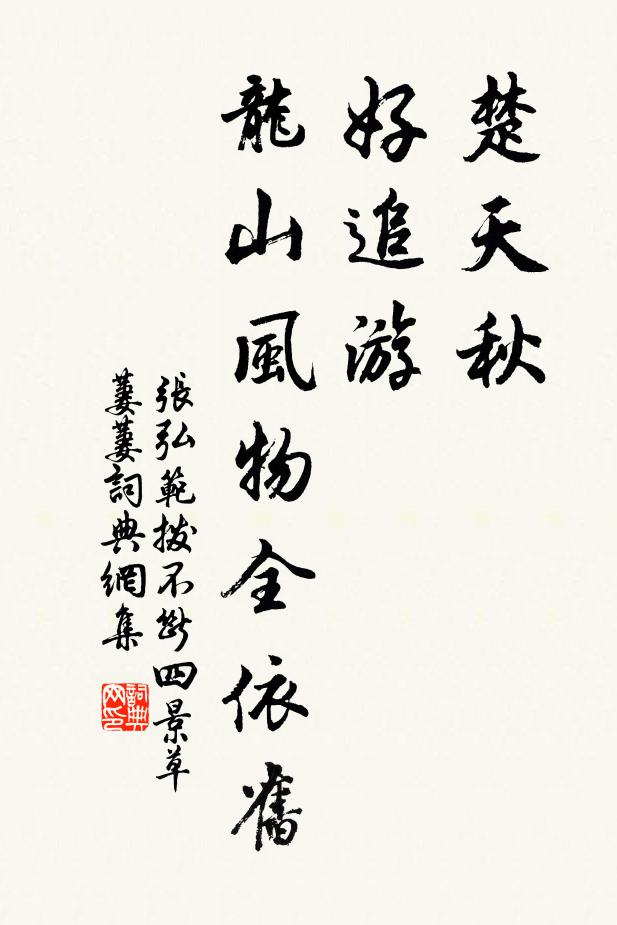 楚天秋
好追游
龍山風物全依舊
張弘範撥不斷四景草
萋萋詞典網集
詞典網印